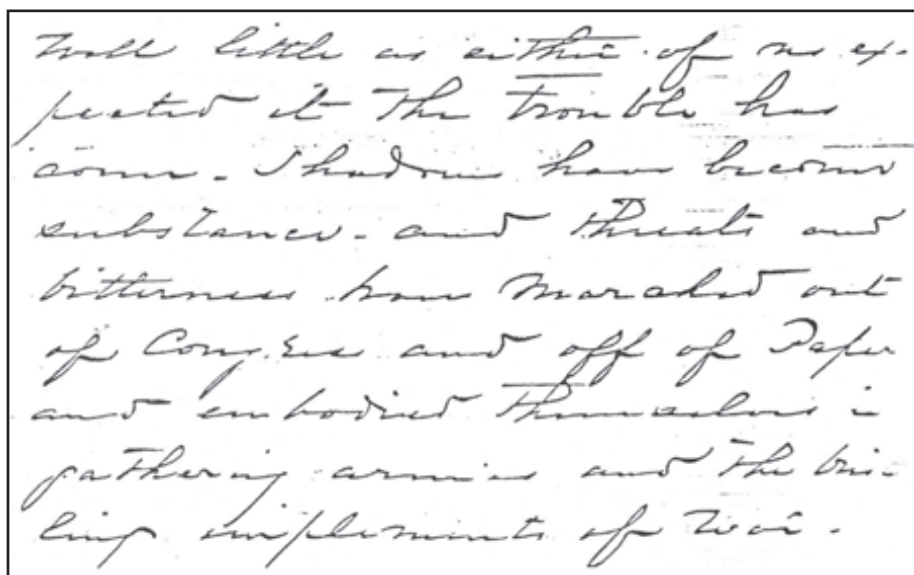 Well little as either of us ex-
pected it the Trouble has
come. Shadows have become
substance. and Threats and
bitterness have marched out
of Congress and off of Paper
and embodied Themselves in
gathering armies and the bris-
ling implements of War.